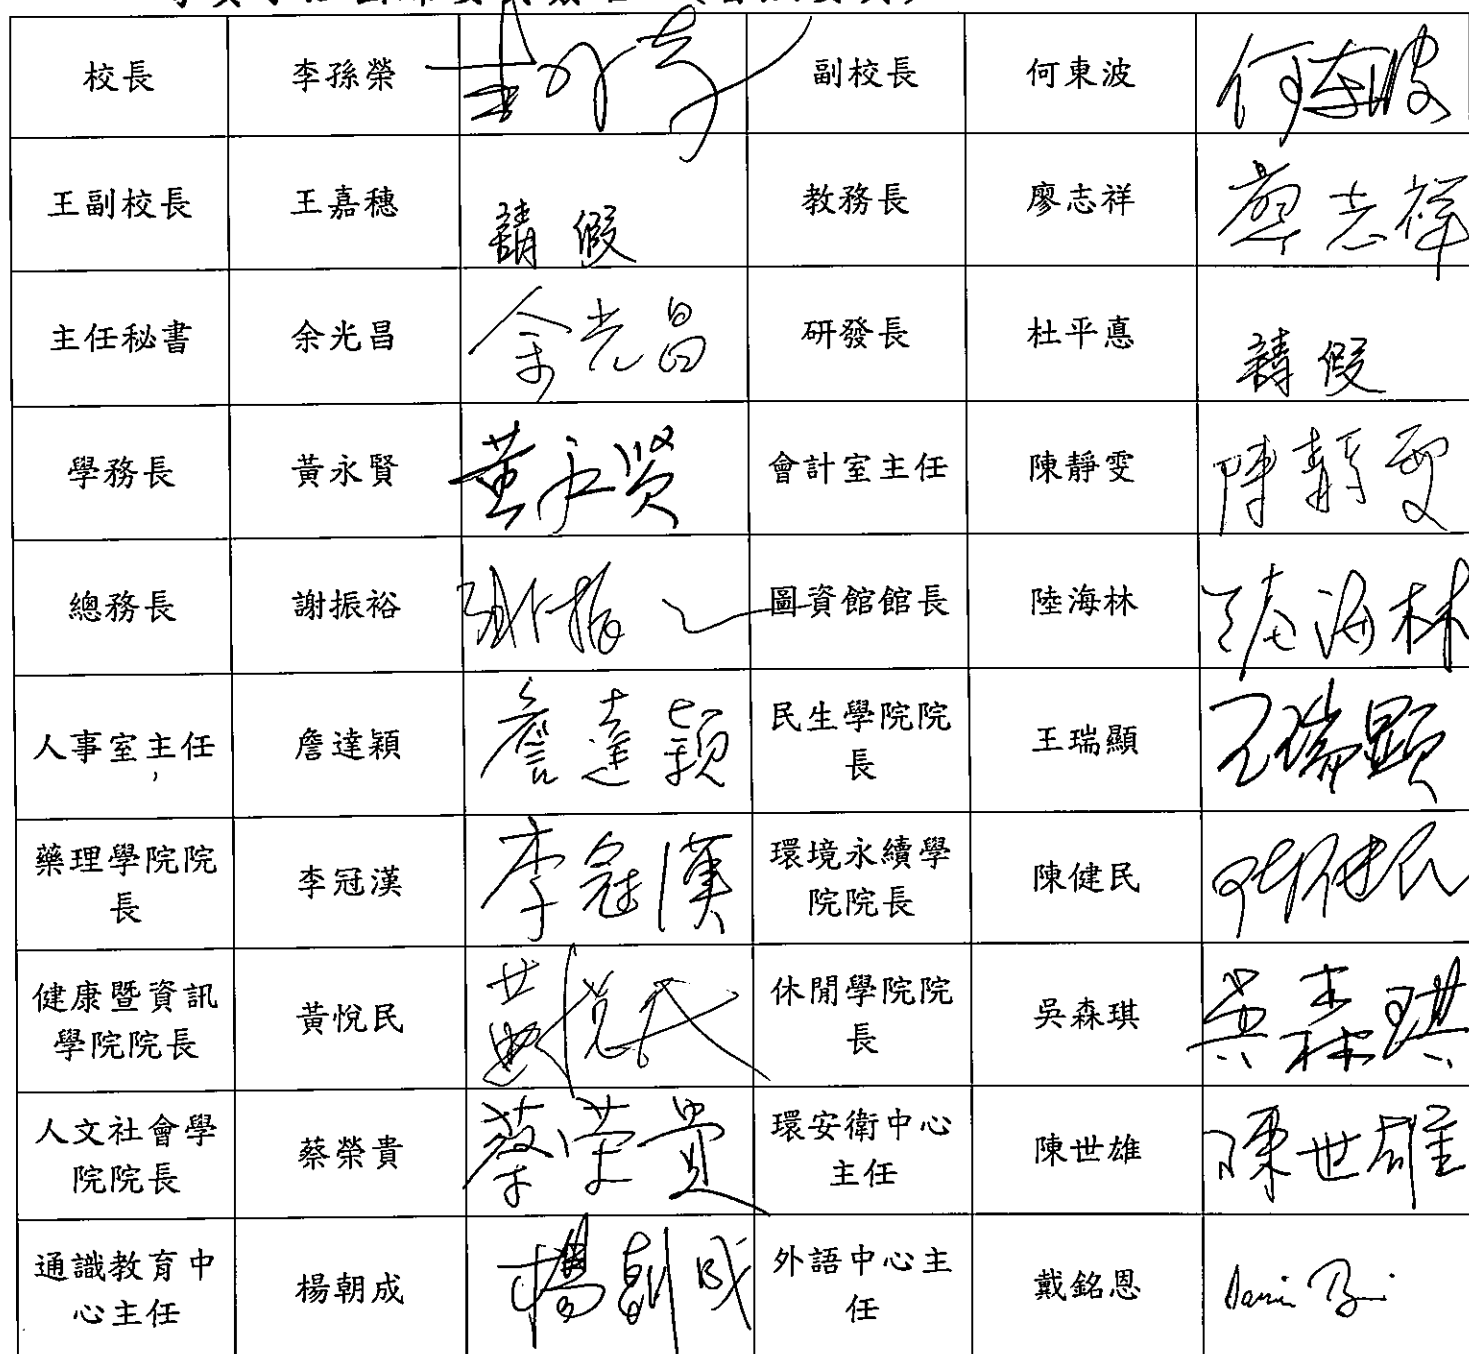 校長 李孫榮 副校長 何東波 何東波
王副校長 王嘉穗 請假 教務長 廖志祥 廖志祥
主任秘書 余光昌 余光昌 研發長 杜平悳 請假
學務長 黃永賢 黃永賢 會計室主任 陳靜雯 陳靜雯
總務長 謝振裕 圖資館館長 陸海林 陸海林
人事室主任 詹達穎 詹達穎 民生學院院
長 王瑞顯 王瑞顯
藥理學院院
長 李冠漢 李冠漢 環境永續學
院院長 陳健民 陳健民
健康暨資訊
學院院長 黃悅民 黃悅民 休閒學院院
長 吳森琪 吳森琪
人文社會學
院院長 蔡榮貴 蔡榮貴 環安衛中心
主任 陳世雄 陳世雄
通識教育中
心主任 楊朝成 楊朝成 外語中心主
任 戴銘恩